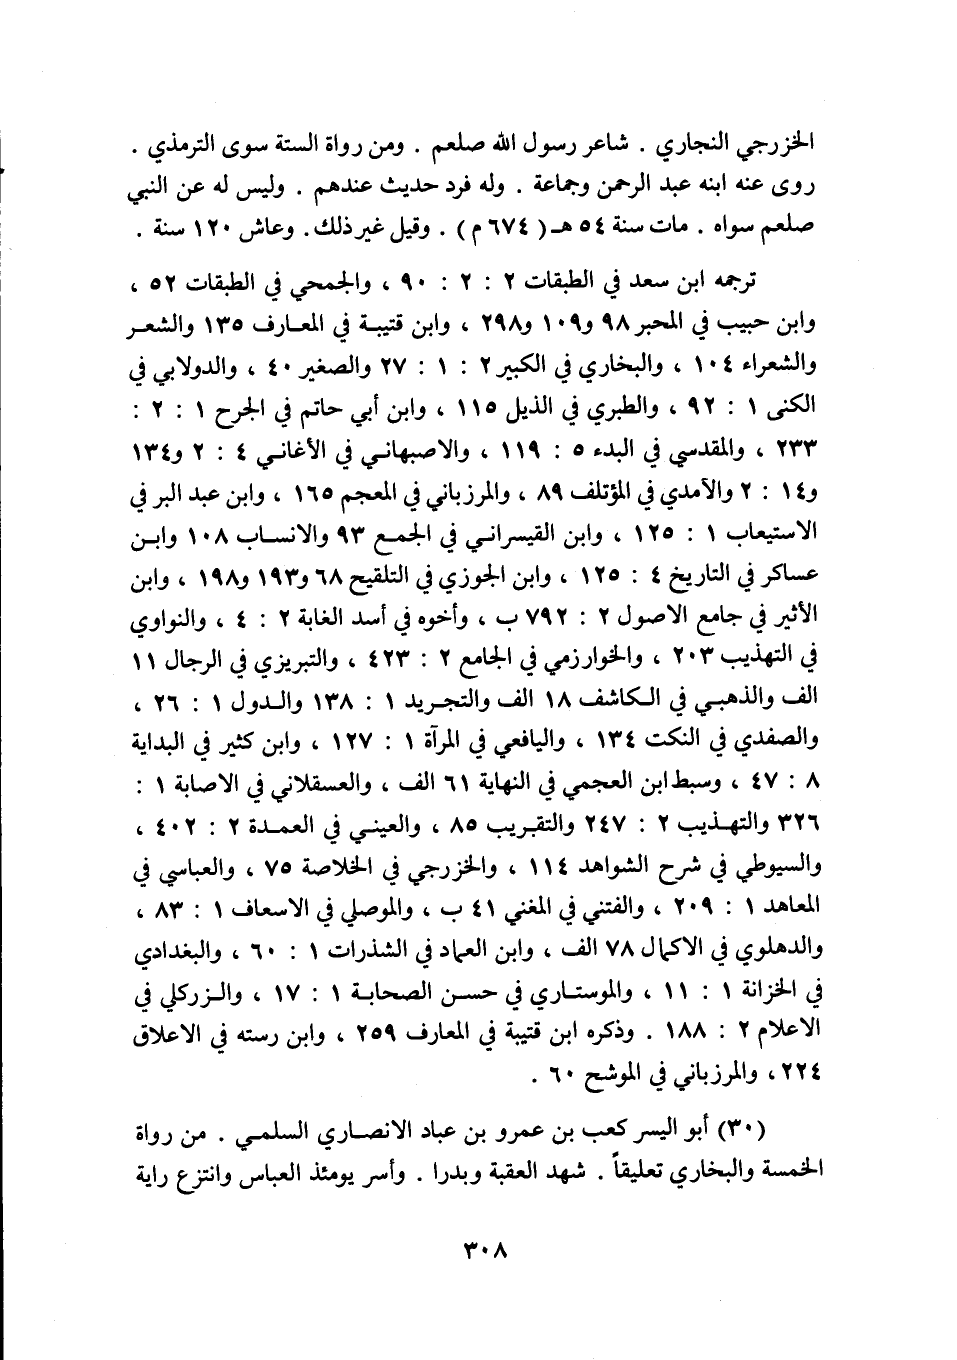 الخزرجي النجاري . شاعر رسول الله صلعم . ومن رواة الستة سوى الترمذي .
روى عنه ابنه عبد الرحمن وجماعة . وله فرد حديث عندهم . وليس له عن النبي
صلعم سواه . مات سنة ٥٤ هـ ( ٦٧٤ م ) . وقيل غير ذلك . وعاش ١٢٠ سنة .
ترجمه ابن سعد في الطبقات ٢ : ٢ : ٩٠ ، والجمحي في الطبقات ٥٢ ،
وابن حبيب في المحبر ٩٨ و١٠٩ و٢٩٨ ، وابن قتيبة في المعارف ١٣٥ والشعر
والشعراء ١٠٤ ، والبخاري في الكبير ٢ : ١ : ٢٧ والصغير ٤٠ ، والدولابي في
الكنى ١ : ٩٢ ، والطبري في الذيل ١١٥ ، وابن أبي حاتم في الجرح ١ : ٢ :
٢٣٣ ، والمقدسي في البدء ٥ : ١١٩ ، والاصبهاني في الأغاني ٤ : ٢ و١٣٤
و١٤ : ٢ والآمدي في المؤتلف ٨٩ ، والمرزباني في المعجم ١٦٥ ، وابن عبد البر في
الاستيعاب ١ : ١٢٥ ، وابن القيسراني في الجمع ٩٣ والانساب ١٠٨ وابن
عساكر في التاريخ ٤ : ١٢٥ ، وابن الجوزي في التلقيح ٦٨ و١٩٣ و١٩٨ ، وابن
الأثير في جامع الاصول ٢ : ٧٩٢ ب ، وأخوه في أسد الغابة ٢ : ٤ ، والنواوي
في التهذيب ٢٠٣ ، والخوارزمي في الجامع ٢ : ٤٢٣ ، والتبريزي في الرجال ١١
الف والذهبي في الكاشف ١٨ الف والتجريد ١ : ١٣٨ والدول ١ : ٢٦ ،
والصفدي في النكت ١٣٤ ، واليافعي في المرآة ١ : ١٢٧ ، وابن كثير في البداية
٨ : ٤٧ ، وسبط ابن العجمي في النهاية ٦١ الف ، والعسقلاني في الاصابة ١ :
٣٢٦ والتهذيب ٢ : ٢٤٧ والتقريب ٨٥ ، والعيني في العمدة ٢ : ٤٠٢ ،
والسيوطي في شرح الشواهد ١١٤ ، والخزرجي في الخلاصة ٧٥ ، والعباسي في
المعاهد ١ : ٢٠٩ ، والفتني في المغني ٤١ ب ، والموصلي في الاسعاف ١ : ٨٣ ،
والدهلوي في الاكمال ٧٨ الف ، وابن العماد في الشذرات ١ : ٦٠ ، والبغدادي
في الخزانة ١ : ١١ ، والموستاري في حسن الصحابة ١ : ١٧ ، والزركلي في
الاعلام ٢ : ١٨٨ . وذكره ابن قتيبة في المعارف ٢٥٩ ، وابن رسته في الاعلاق
٢٢٤ ، والمرزباني في الموشح ٦٠ .
(٣٠) أبو اليسر كعب بن عمرو بن عباد الانصاري السلمي . من رواة
الخمسة والبخاري تعليقاً . شهد العقبة وبدرا . وأسر يومئذ العباس وانتزع راية
٣٠٨